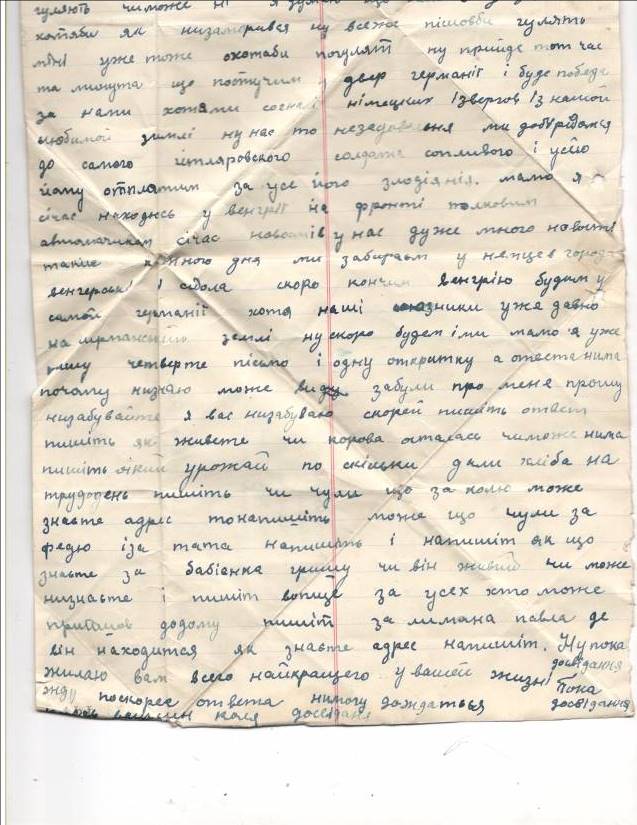 гуляють чиможе ні я думаю що
хотяби як низамерився ну всеже пішовби гулять
міні уже тоже охотаби погулят ну прийде тот час
та минута що постучим у двер германії і буде победа
за нами хотами німецких ізвергов із нашой
любимой землі ну нас то ми добурімся
до самого гітляровского солдата сопливого і усйо
йому отплатим за усе його злодіянія. мамо я
січас находюсь у венгрії на фронті полковим
автоматчиком січас новостів у нас дуже много новості
такие кажного дня ми забираєм у немцев города
венгерські і сьола скоро кончим Венгрію будим у
самой германії хотя наші союзники уже давно
на германській землі ну скоро будем і ми мамо я уже
пишу четверте пісьмо і одну откритку а отвєста нима
почому низнаю може виду забули про меня прошу
низабувайте я вас низабуваю скорей пишіть ответ
пишіть як живете чи корова осталась чиможе нима
пишіть якій урожай по скільки дали хліба на
трудодень пишіть чи чули що за колю може
знаєте адрес то напишіть може що чули за
федю іза тата напишіть і напишіт як що
знаєте за бабіянка гришу чи він живий чи може
низнаєте і пишіт вопще за усех хто може
пришов додому пишіт за лимана павла де
він находится як знаєте адрес напишіт. Ну пока
досвідання
жилаю вам всего найкращего у вашей жизні Пока
жду поскорее ответа нимогу дождаться досвідання
коля досвіданя